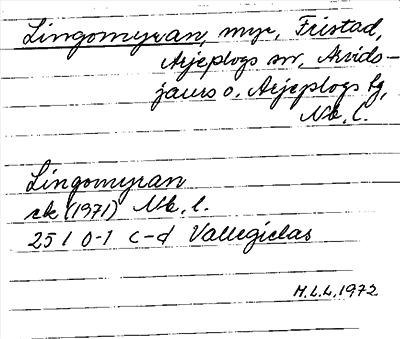 Lingomyran, myr, Fristad,
Arjeplogs sn, Arvids-
jaurs o. Arjeplogs tg,
Nb, l.
Lingomyran
ek (1971) Nb, l.
25 I 0-1 c-d Vallegielas
H.L.L. 1972